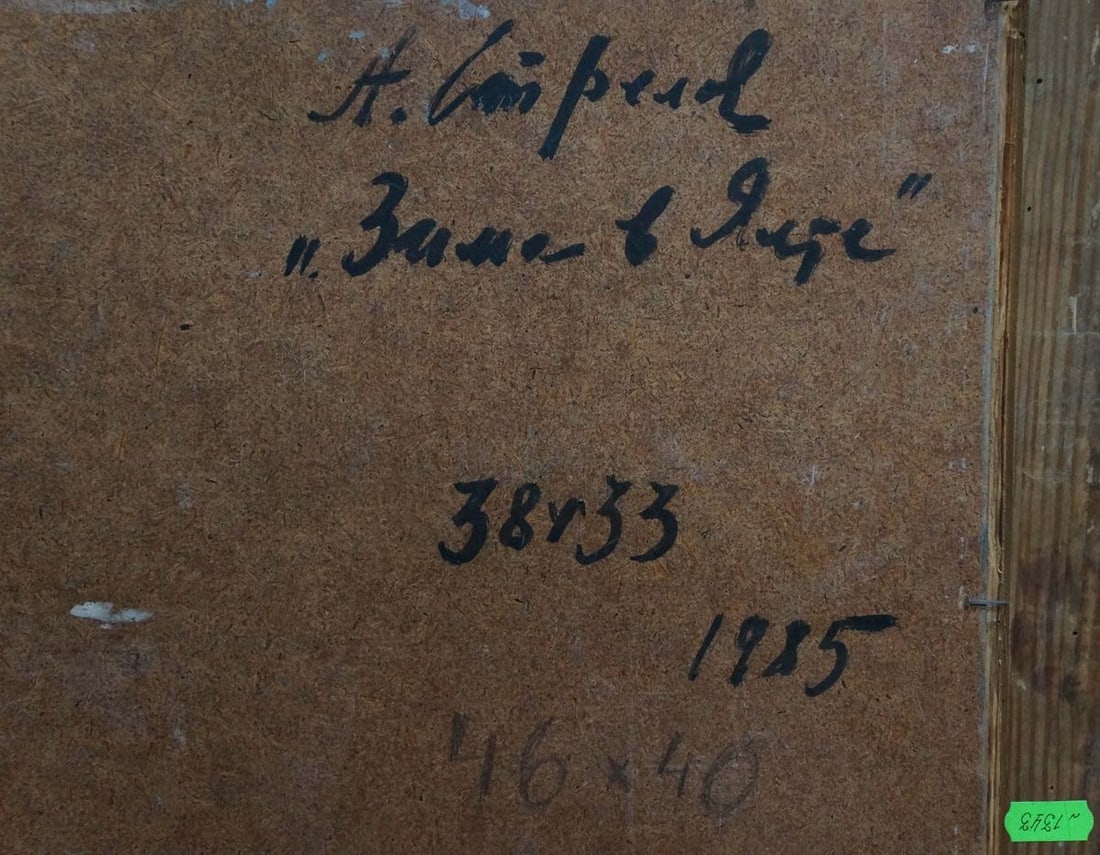 А. Стрелов
„Зима в Ялте"
38х33
1985
46 x 40
~ 1343